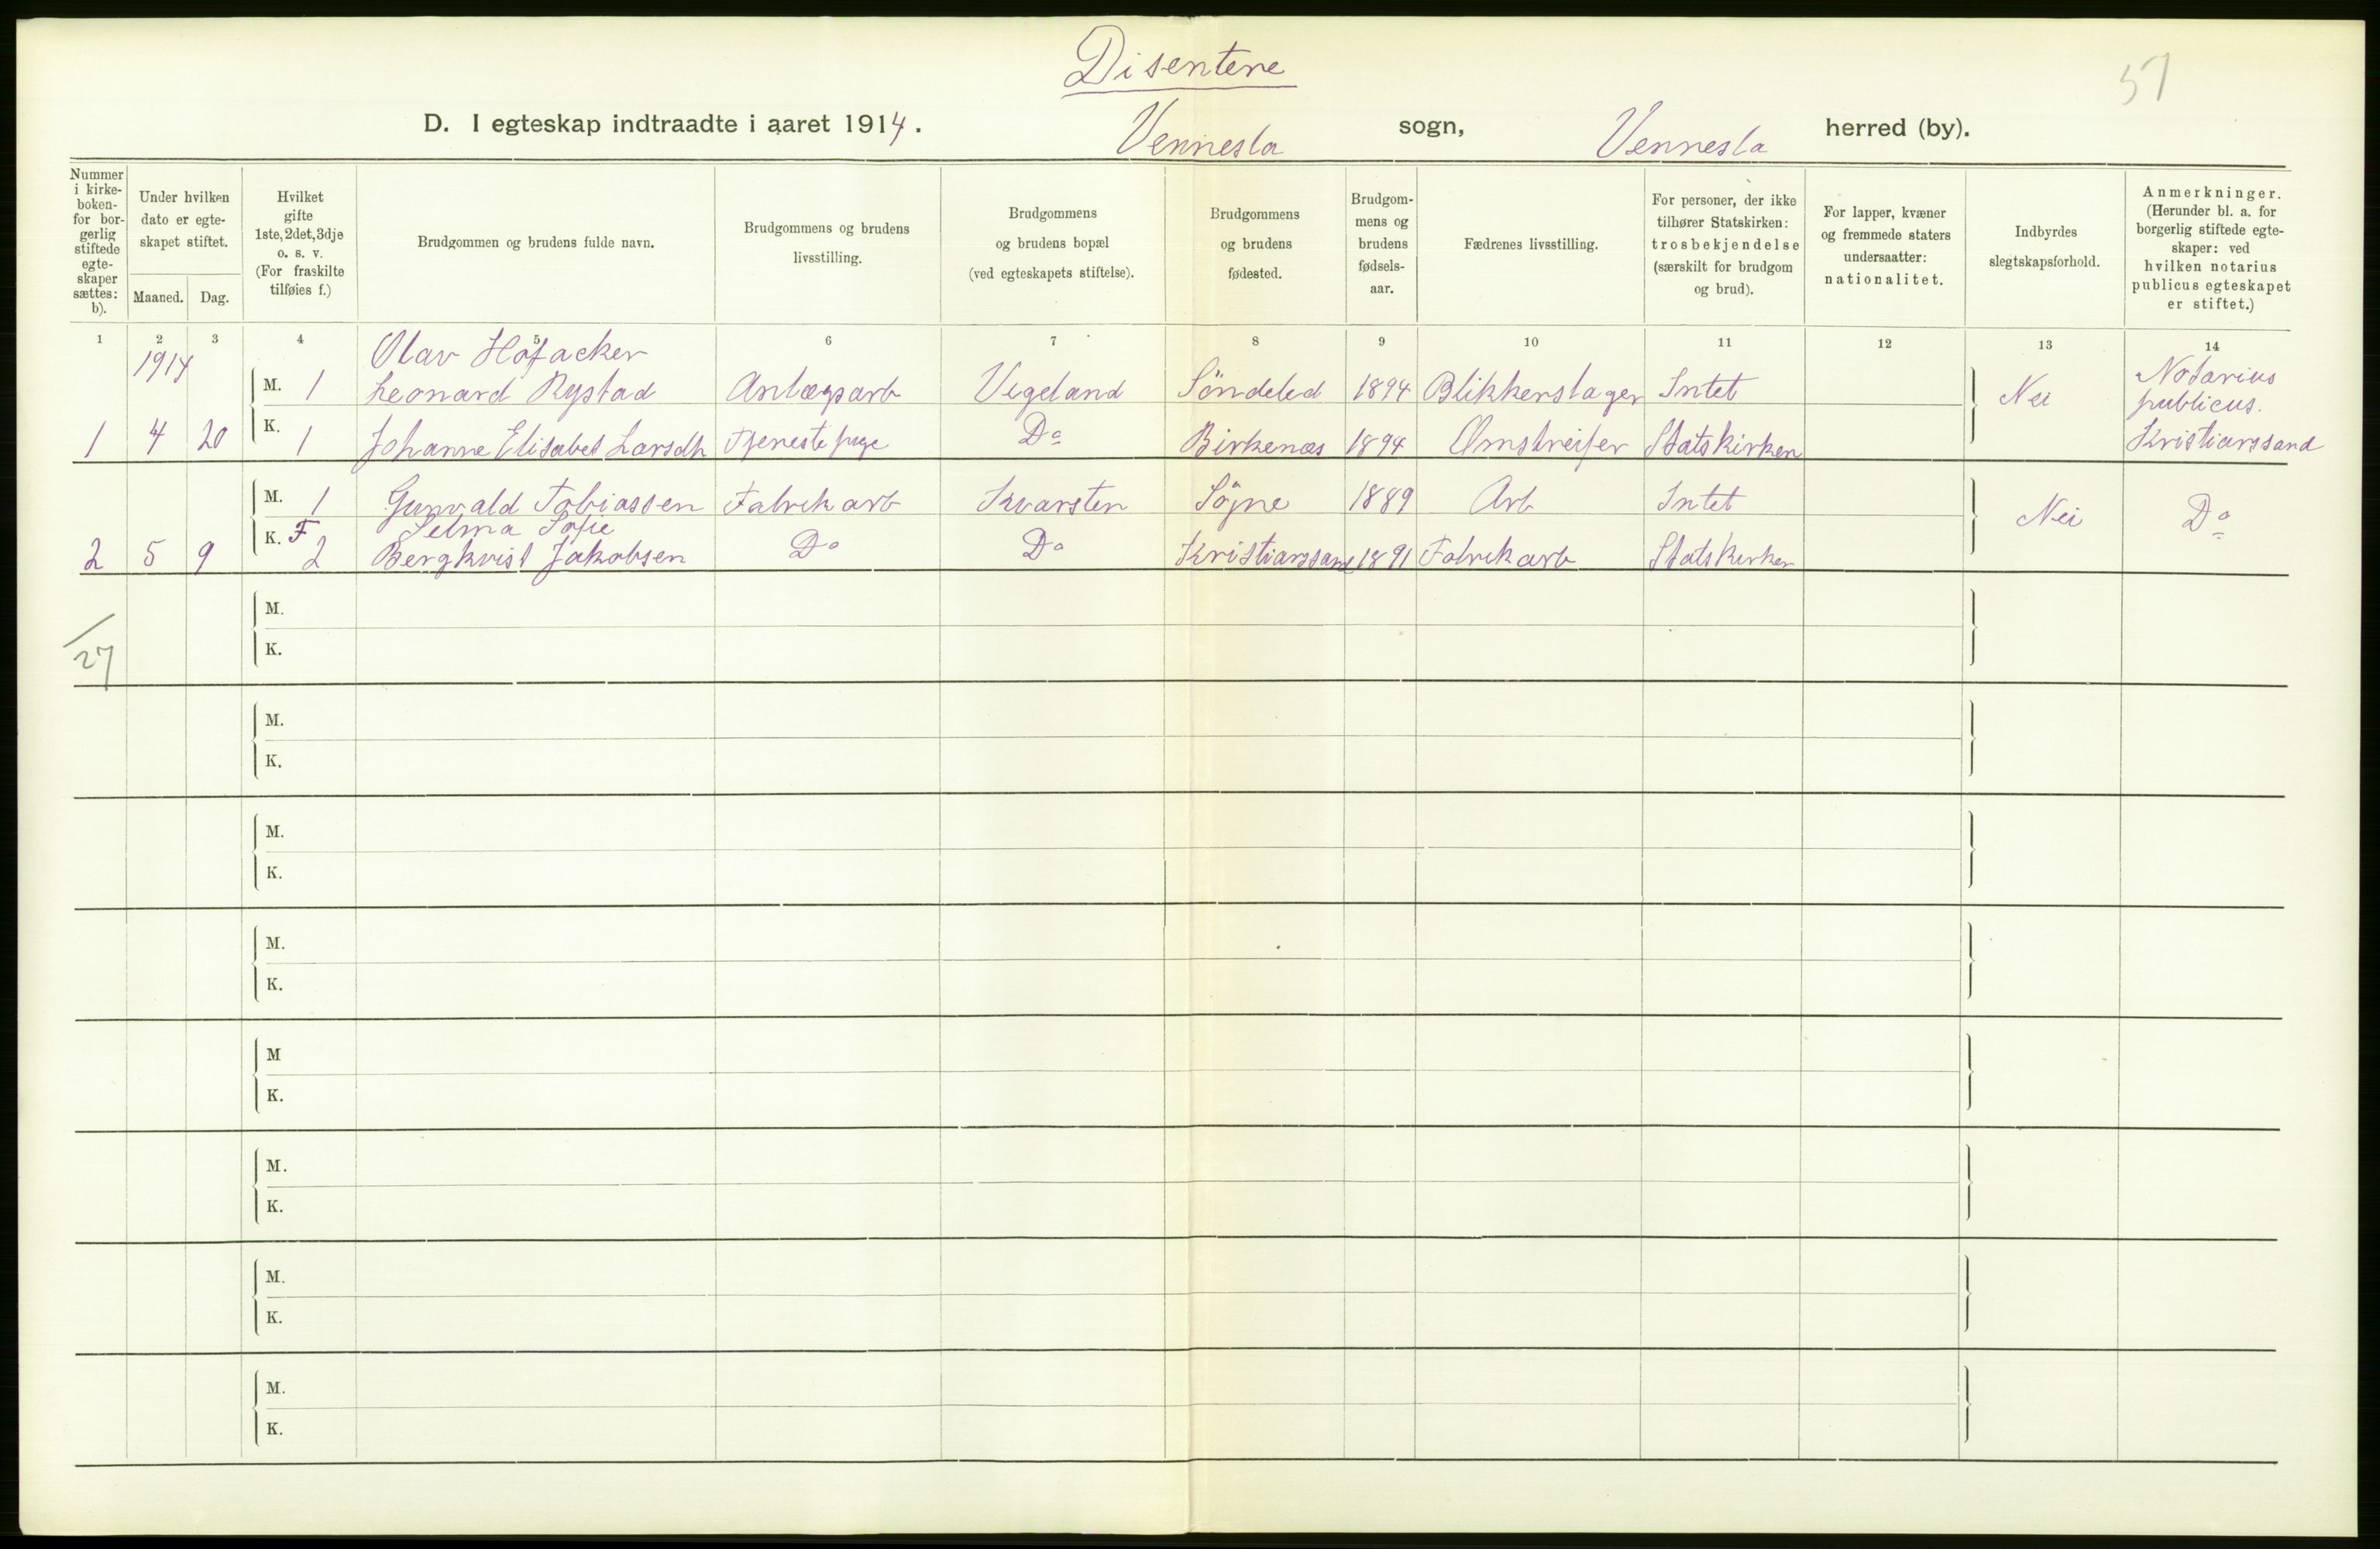 Disentere
57
D. I egteskap indtraadte i aaret 1914. Vennesla sogn, Vennesla herred (by).
Nummer i kirke-boken- for bor-gerlig stiftede egte-skaper sættes: b).
Under hvilken dato er egte-skapet stiftet.
Maaned. Dag.
Hvilket gifte 1ste, 2det, 3dje o. s. v. (For fraskilte tilføies f.)
Brudgommen og brudens fulde navn.
Brudgommens og brudens livsstilling.
Brudgommens og brudens bopæl (ved egteskapets stiftelse).
Brudgommens og brudens fødested.
Brudgom-mens og brudens fødsels-aar.
Fædrenes livsstilling.
For personer, der ikke tilhører Statskirken: trosbekjendelse (særskilt for brudgom og brud).
For lapper, kvæner og fremmede staters undersaatter: nationalitet.
Indbyrdes slegtskapsforhold.
Anmerkninger. (Herunder bl. a. for borgerlig stiftede egte-skaper: ved hvilken notarius publicus egteskapet er stiftet.)
1 2 3 4 5 6 7 8 9 10 11 12 13 14
1914 Olav Hofacker
M. 1 Leonard Rystad Anlægsarb Vegeland Söndeled 1894 Blikkenslager Intet Nei Notarius publicus.
1 4 20 K. 1 Johanne Elisabet Larsdtr Tjenestepige Do Birkenæs 1894 Omstreifer Statskirken Kristianssand
M. 1 Gunvald Tobiassen Fabrikarb Kvarsten Søgne 1889 Arb Intet Nei Do
Selma Sofie
2 5 9 K. F 2 Bergkvist Jakobsen Do Do Kristianssand 1891 Fabrikarb Statskirken
M.
/27
K.
M.
K.
M.
K.
M.
K.
M
K.
M.
K.
M.
K.
M.
K.